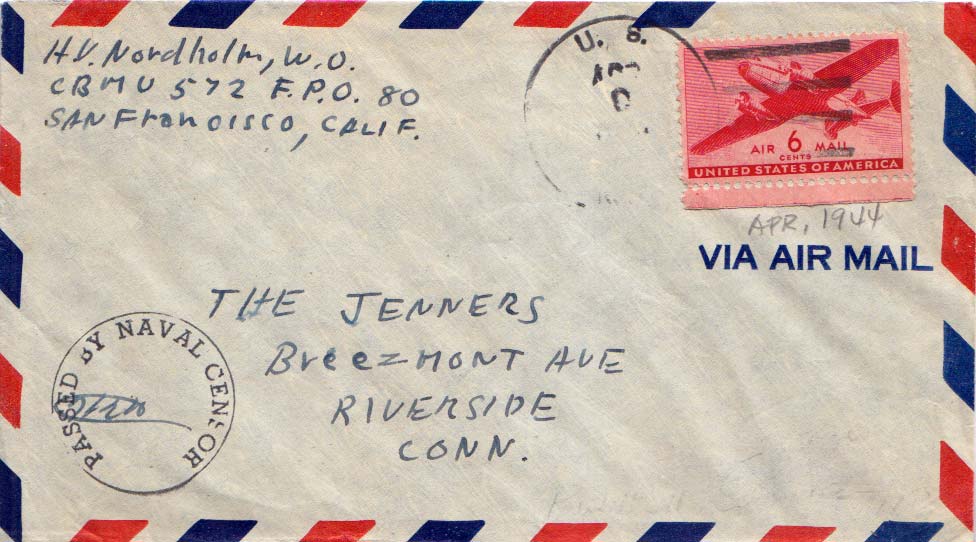 H.V. Nordholm, W.O.
CBMU 572 F.P.O. 80
SAN Francisco, CALIF.
U. S.
AIR 6 MAIL
CENTS
UNITED STATES OF AMERICA
APR, 1944
VIA AIR MAIL
THE JENNERS
BreezMONT AVE
RIVERSIDE
CONN.
PASSED BY NAVAL CENSOR